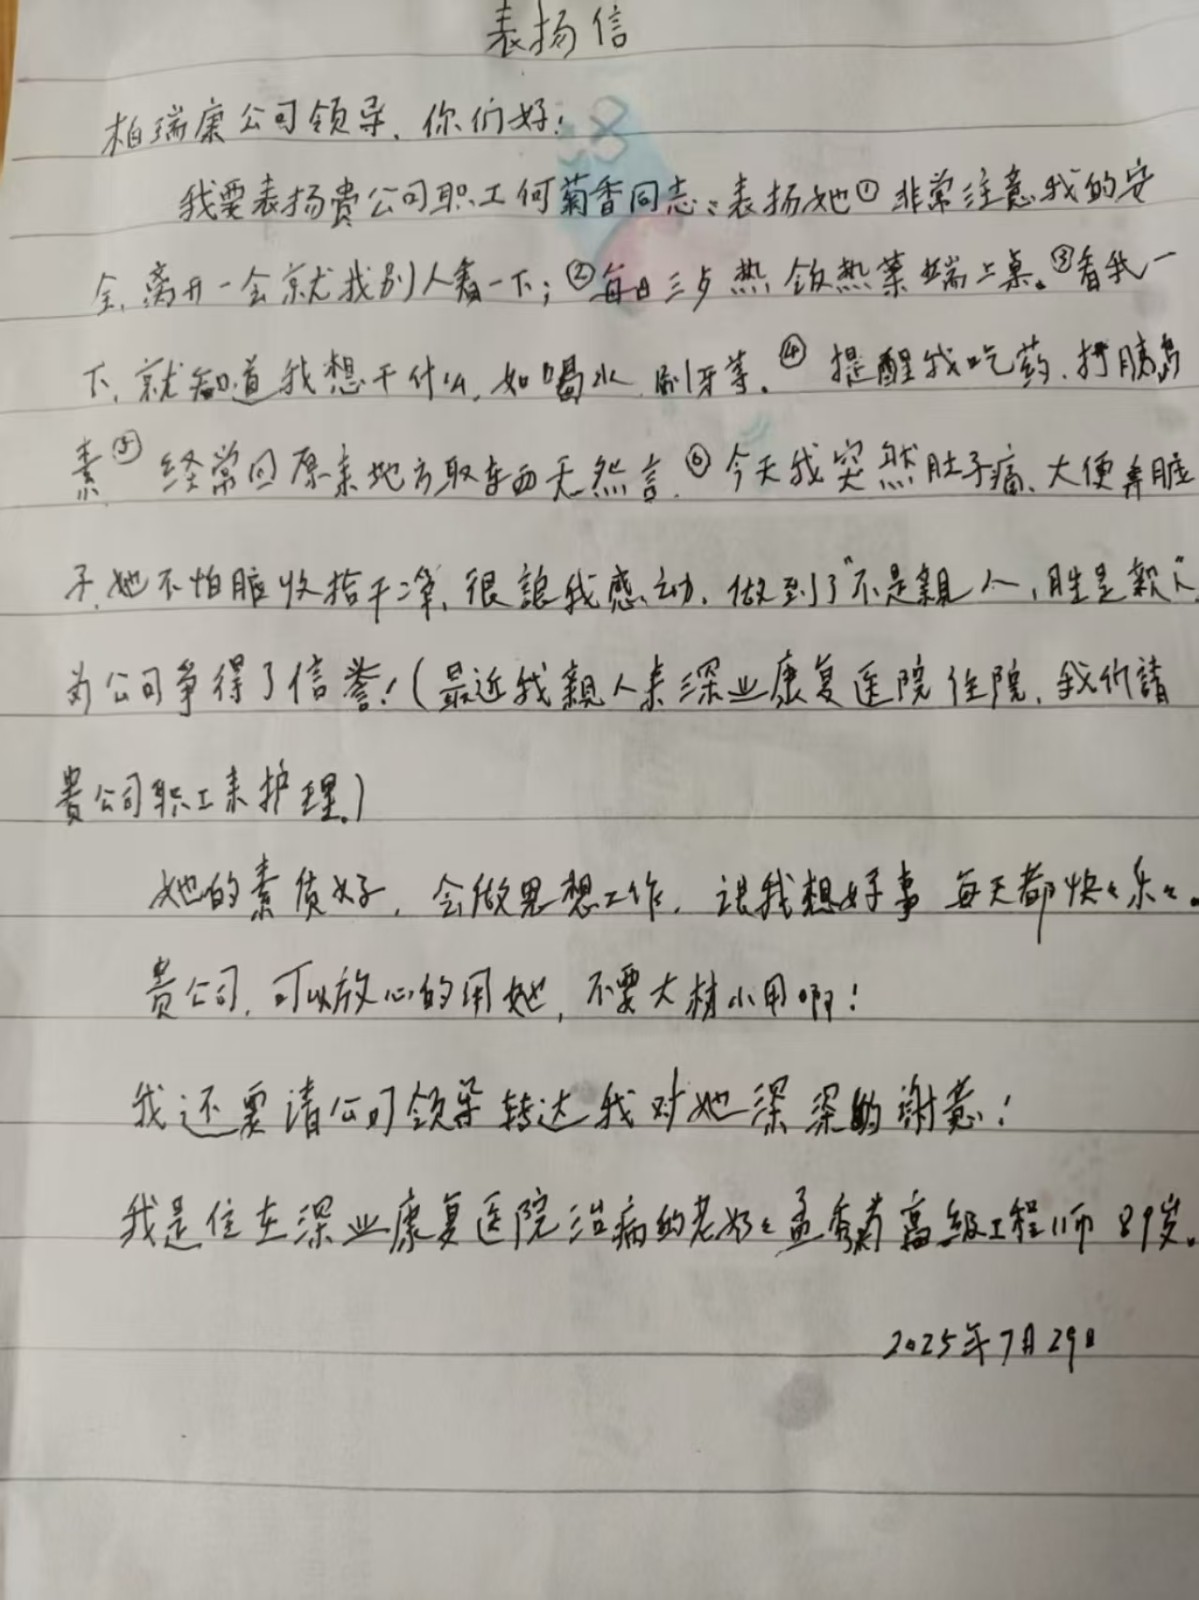 表扬信
柏瑞康公司领导、你们好!
我要表扬贵公司职工何菊香同志:表扬她①非常注意我的安
全,离开一会就找别人看一下;②每日三步热饭热菜端上桌。③看我一
下,就知道我想干什么,如喝水、刷牙等。④提醒我吃药、打胰岛
素⑤经常回原来地方取东西无怨言。⑥今天我突然肚子痛、大便弄脏
了,她不怕脏收拾干净,很讓我感动,做到了"不是親人,胜是親人"
为公司争得了信誉!(最近我親人来深业康复医院住院,我们請
貴公司职工来护理。)
她的素质好,会做思想工作,让我想好事每天都快々乐々。
贵公司,可以放心的用她,不要大材小用啊!
我还要请公司领导转达我对她深深的谢意!
我是住在深业康复医院治病的老奶々孟秀 高级工程师89岁。
2025年7月29日